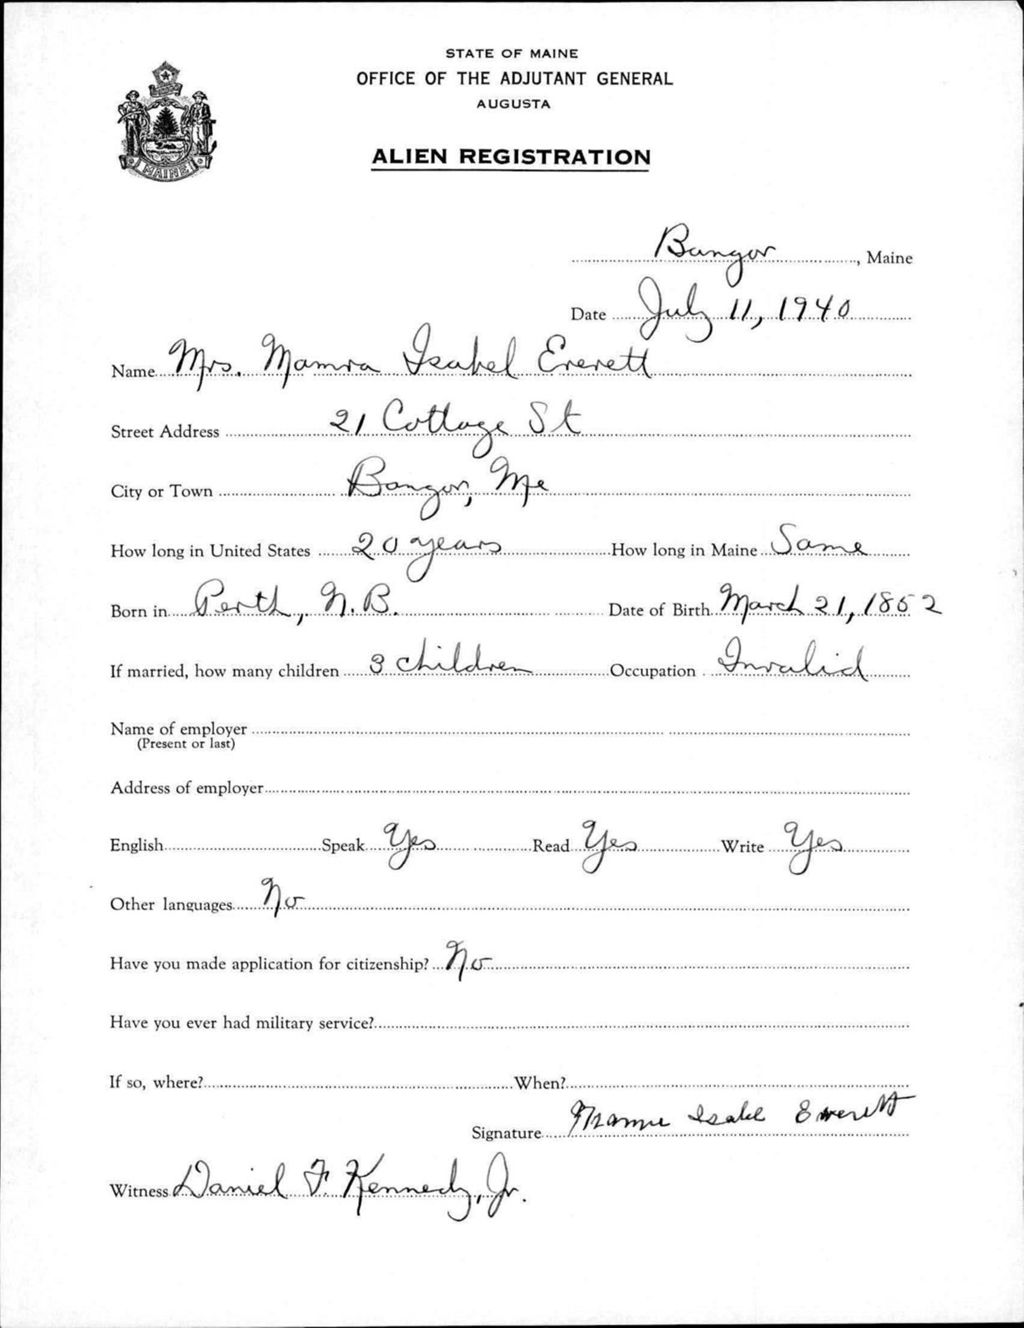 STATE OF MAINE
OFFICE OF THE ADJUTANT GENERAL
AUGUSTA
ALIEN REGISTRATION
MAINE
Bangor, Maine
Date July 11, 1940
Name Mrs. Mamra Isabel Everett
Street Address 21 Cottage St
City or Town Bangor, Me
How long in United States 20 years How long in Maine Same
Born in Perth, N.B. Date of Birth March 21, 1852
If married, how many children 3 children Occupation Invalid
Name of employer
(Present or last)
Address of employer
English Speak Yes Read Yes Write Yes
Other languages No
Have you made application for citizenship? No
Have you ever had military service?
If so, where? When?
Signature Mamie Isabel Everett
Witness Daniel F Kennedy, Jr.